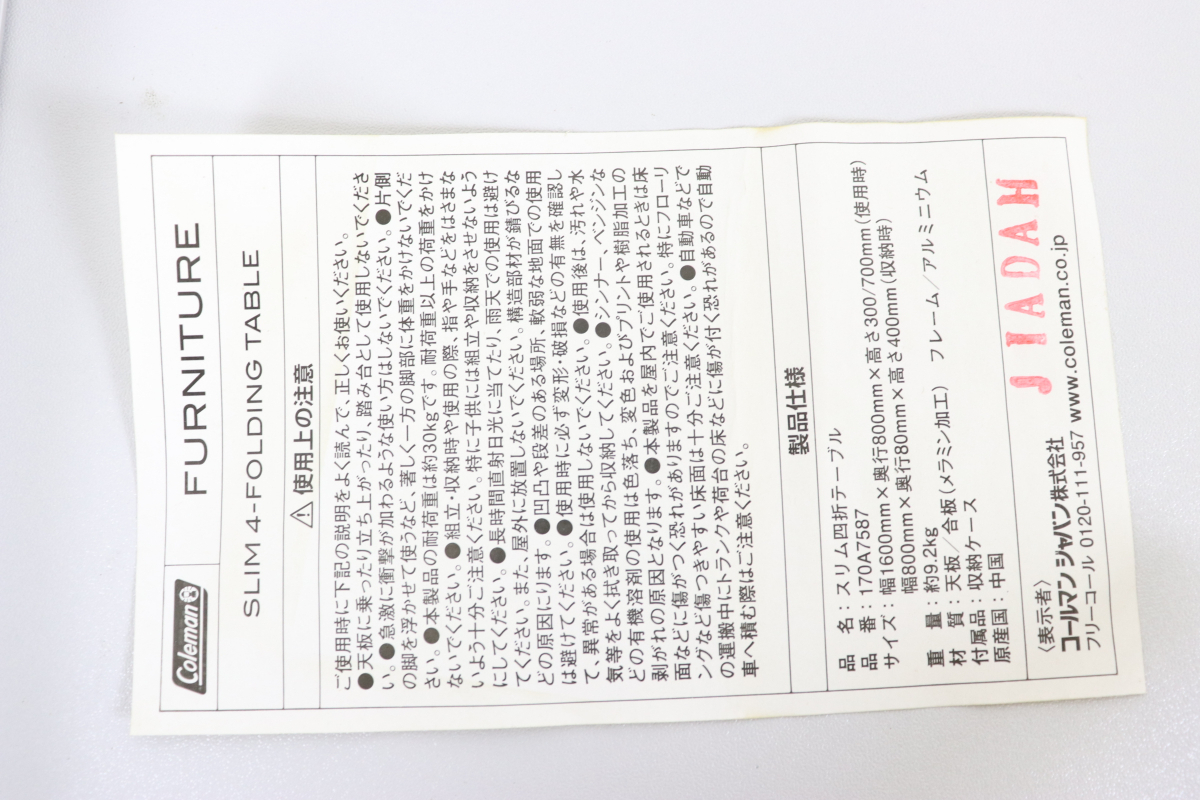 Coleman
FURNITURE
SLIM 4-FOLDING TABLE
⚠ 使用上の注意
ご使用時に下記の説明をよく読んで、正しくお使いください。
●天板に乗ったり立ち上がったり、踏み台として使用しないでくださ
い。●急激に衝撃が加わるような使い方はしないでください。●片側
の脚を浮かせて使うなど、著しく一方の脚部に体重をかけないでくだ
さい。●本製品の耐荷重は約30kgです。耐荷重以上の荷重をかけ
ないでください。●組立・収納時や使用の際、指や手などをはさまな
いよう十分ご注意ください。特に子供には組立や収納をさせないよう
にしてください。●長時間直射日光に当てたり、雨天での使用は避け
てください。また、屋外に放置しないでください。構造部材が錆びるな
どの原因にります。●凹凸や段差のある場所、軟弱な地面での使用
は避けてください。●使用時に必ず変形・破損などの有無を確認し
て、異常がある場合は使用しないでください。●使用後は、汚れや水
気等をよく拭き取ってから収納してください。●シンナー、ベンジンな
どの有機溶剤の使用は色落ち、変色およびプリントや樹脂加工の
剥がれの原因となります。●本製品を屋内でご使用されるときは床
面などに傷がつく恐れがありますのでご注意ください。特にフローリ
ングなど傷つきやすい床面は十分ご注意ください。●自動車などで
の運搬中にトランクや荷台の床などに傷が付く恐れがあるので自動
車へ積む際はご注意ください。
製品仕様
品 名：スリム四折テーブル
品 番：170A7587
サイズ：幅1600mm×奥行800mm×高さ300/700mm(使用時)
幅800mm×奥行80mm×高さ400mm(収納時)
重 量：約9.2kg
材 質：天板／合板(メラミン加工) フレーム／アルミニウム
付属品：収納ケース
原産国：中国
〈表示者〉
コールマン ジャパン株式会社
フリーコール 0120-111-957 www.coleman.co.jp
JIADAH